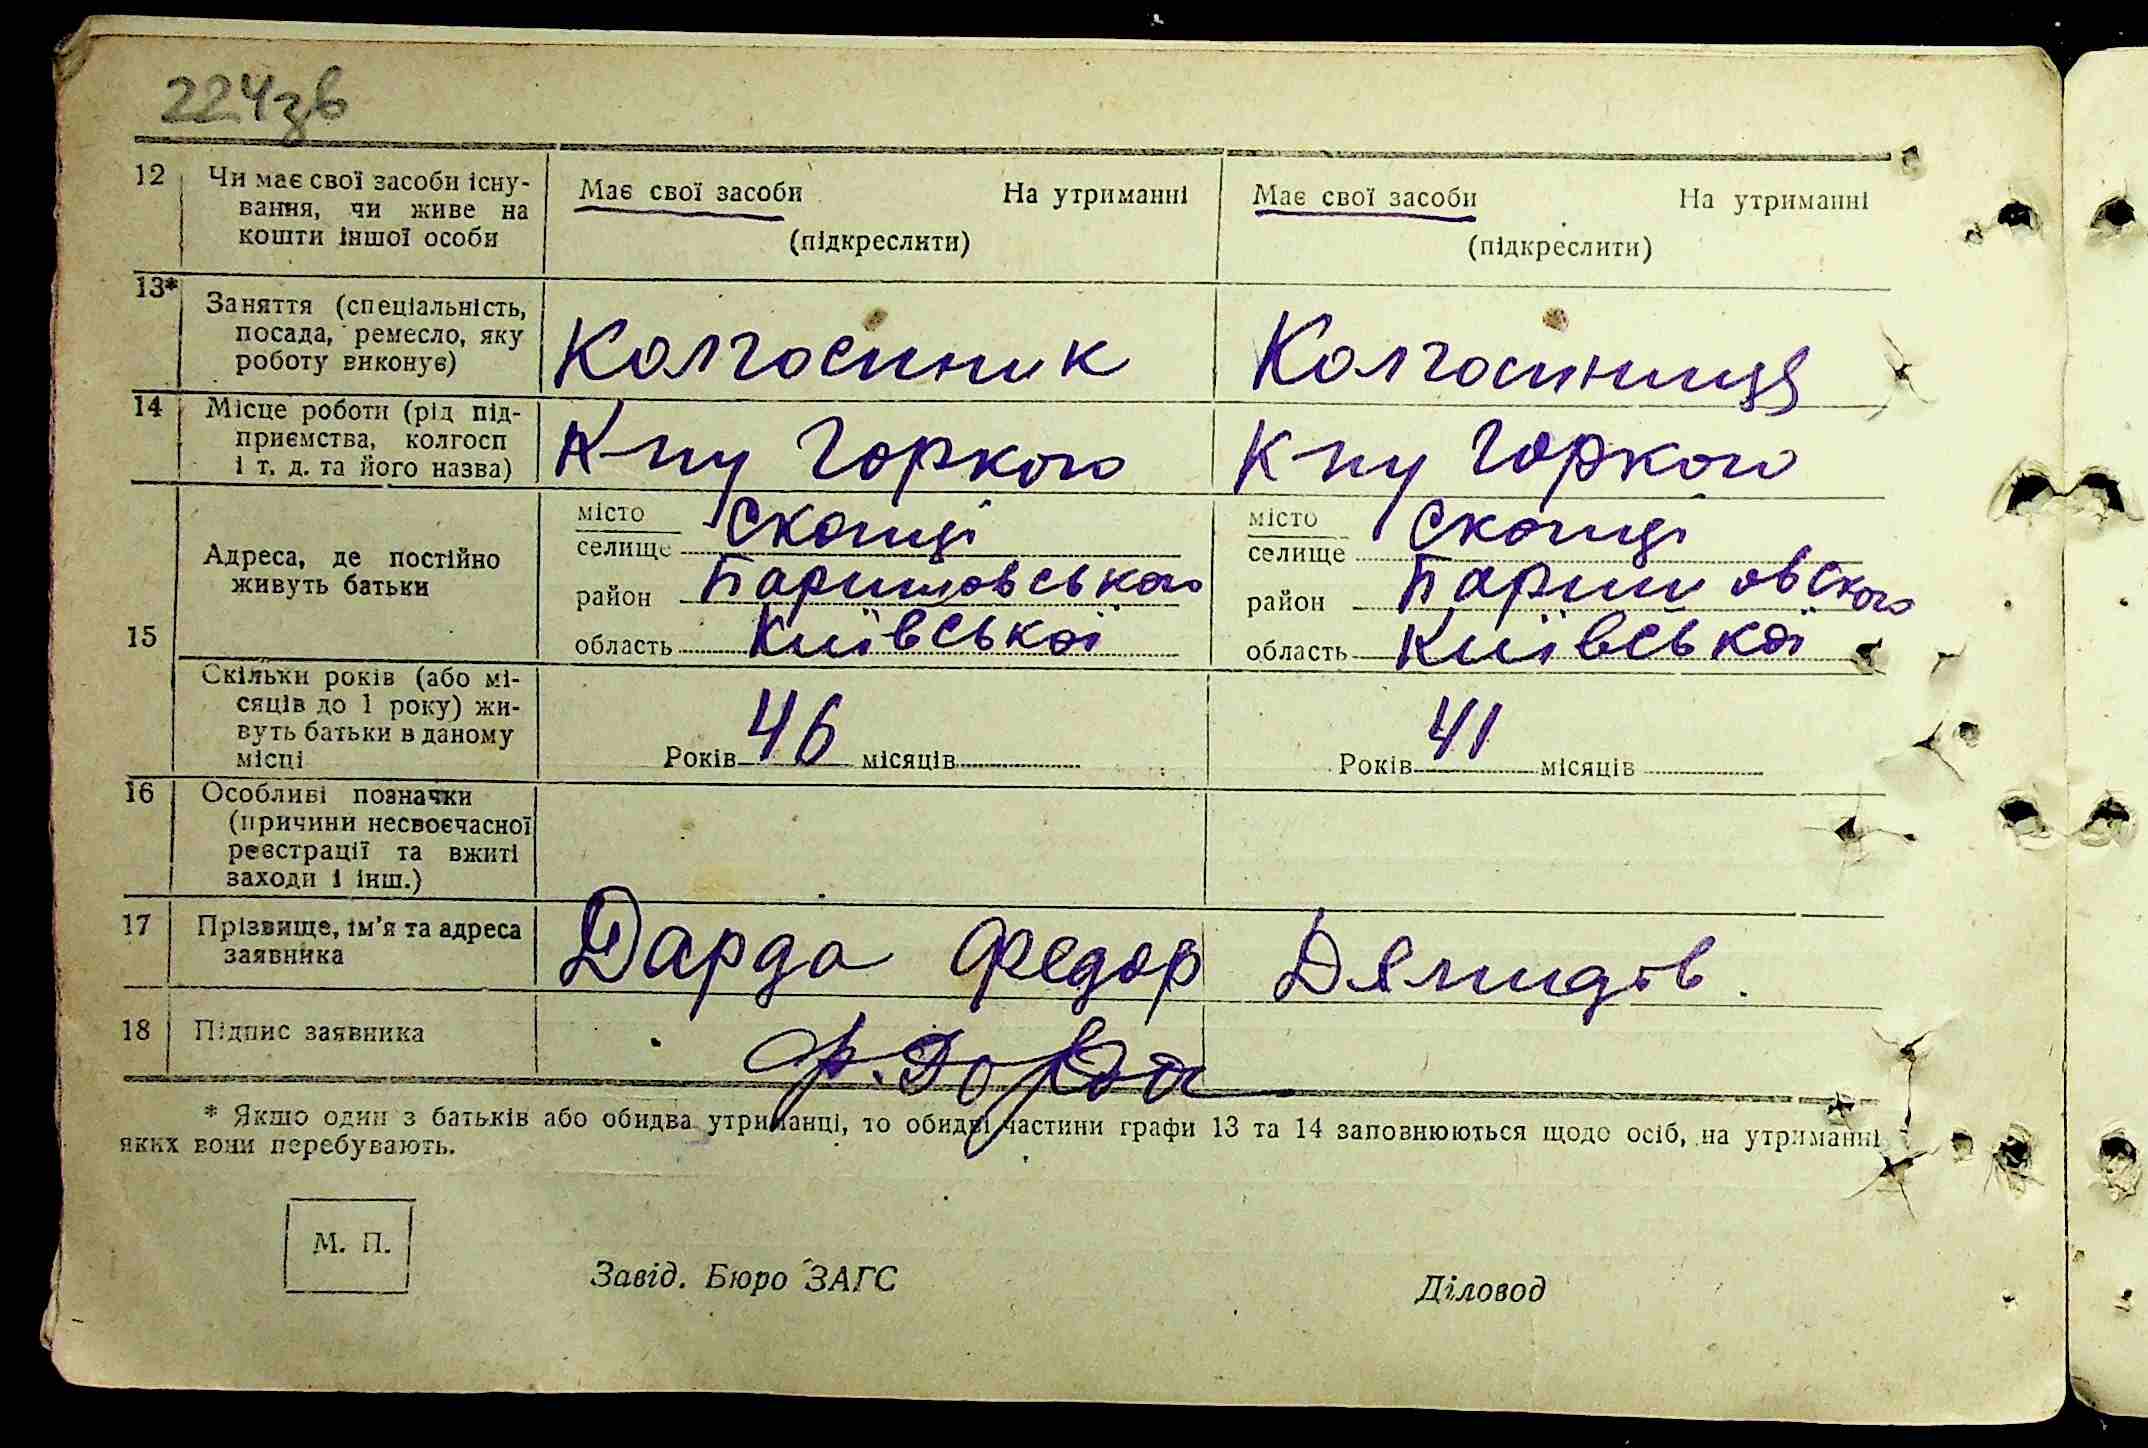 224зв
12 Чи має свої засоби існу-
вання, чи живе на
кошти іншої особи
Має свої засоби На утриманні
(підкреслити)
Має свої засоби На утриманні
(підкреслити)
13* Заняття (спеціальність,
посада, ремесло, яку
роботу виконує)
Колгоспник
Колгоспниця
14 Місце роботи (рід під-
приємства, колгосп
і т. д. та його назва)
К-пу Горкого
К-пу Горкого
15 Адреса, де постійно
живуть батьки
місто
селище Скопці
район Баришовського
область Київської
місто
селище Скопці
район Баришовского
область Київської
Скільки років (або мі-
сяців до 1 року) жи-
вуть батьки в даному
місці
Років 46 місяців
Років 41 місяців
16 Особливі позначки
(причини несвоєчасної
реєстрації та вжиті
заходи і інш.)
17 Прізвище, ім'я та адреса
заявника
Дарда Федор
18 Підпис заявника
Ф. Дарда
* Якшо один з батьків або обидва утриманці, то обидві частини графи 13 та 14 заповнюються щодо осіб, на утриманні
яких вони перебувають.
М. П.
Завід. Бюро ЗАГС
Діловод